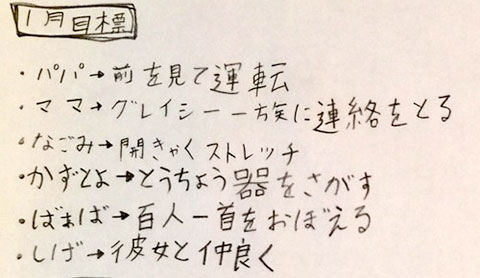 1月目標
・パパ→前を見て運転
・ママ→グレイシー一族に連絡をとる
・なごみ→開きゃくストレッチ
・かずとよ→とうちょう器をさがす
・ばぁば→百人一首をおぼえる
・しげ→彼女と仲良く